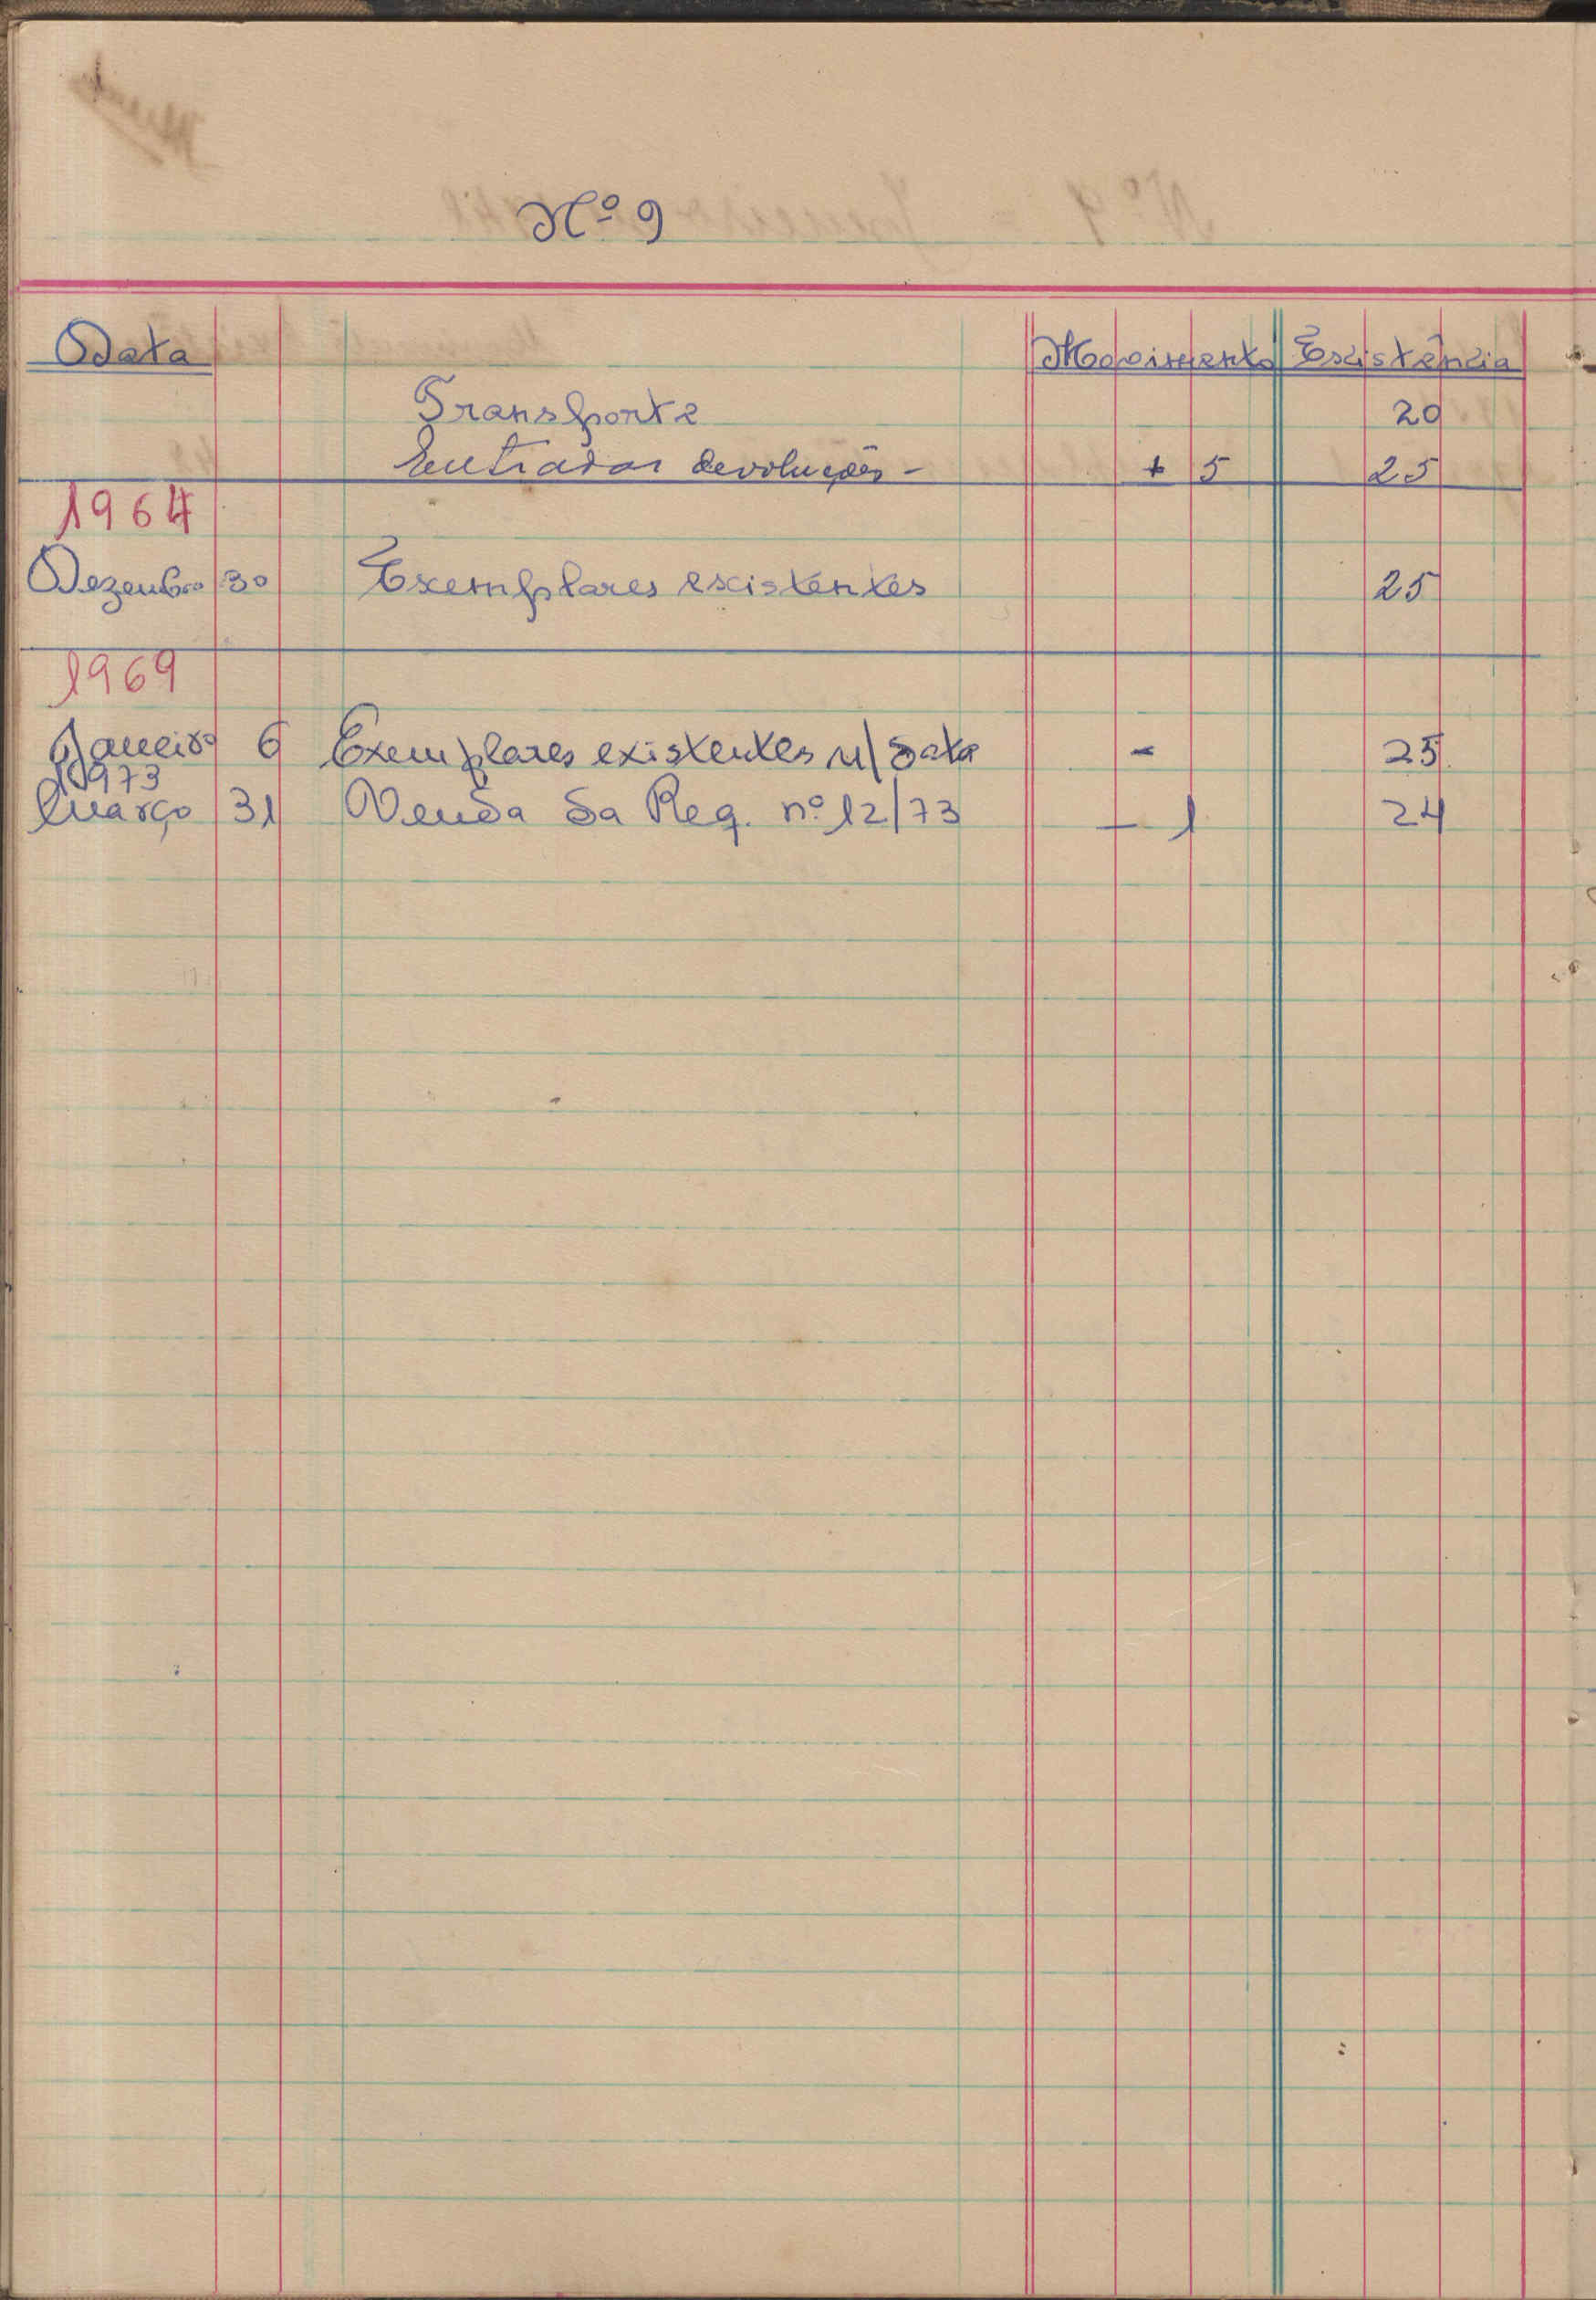 Nº 9
Data Movimento Existência
Transporte 20
Entradas devoluções - + 5 25
1964
Dezembro 30 Exemplares existentes 25
1969
Janeiro 6 Exemplares existentes n/ data - 25
1973
Março 31 Venda da Req. nº 12/73 - 1 24